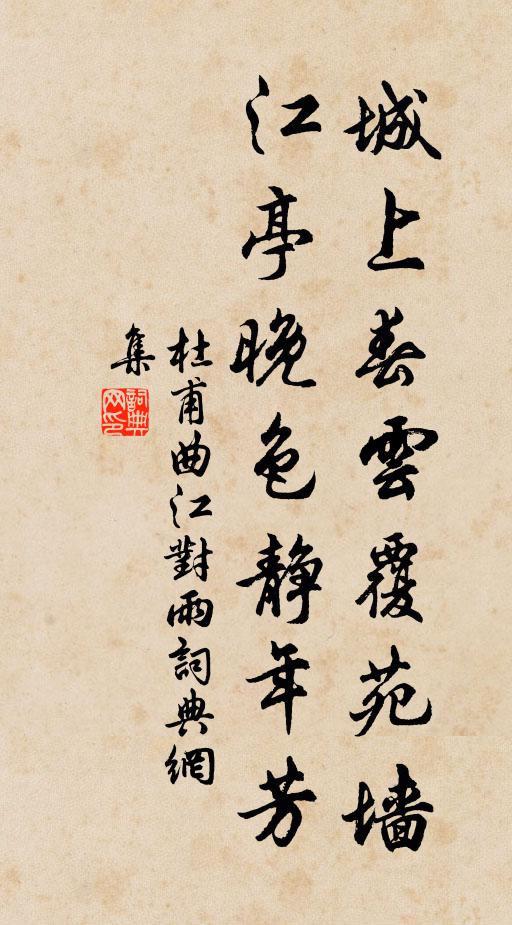 城上春雲覆苑墻
江亭晚色静年芳
杜甫曲江對雨詞典網
集
詞典
网印